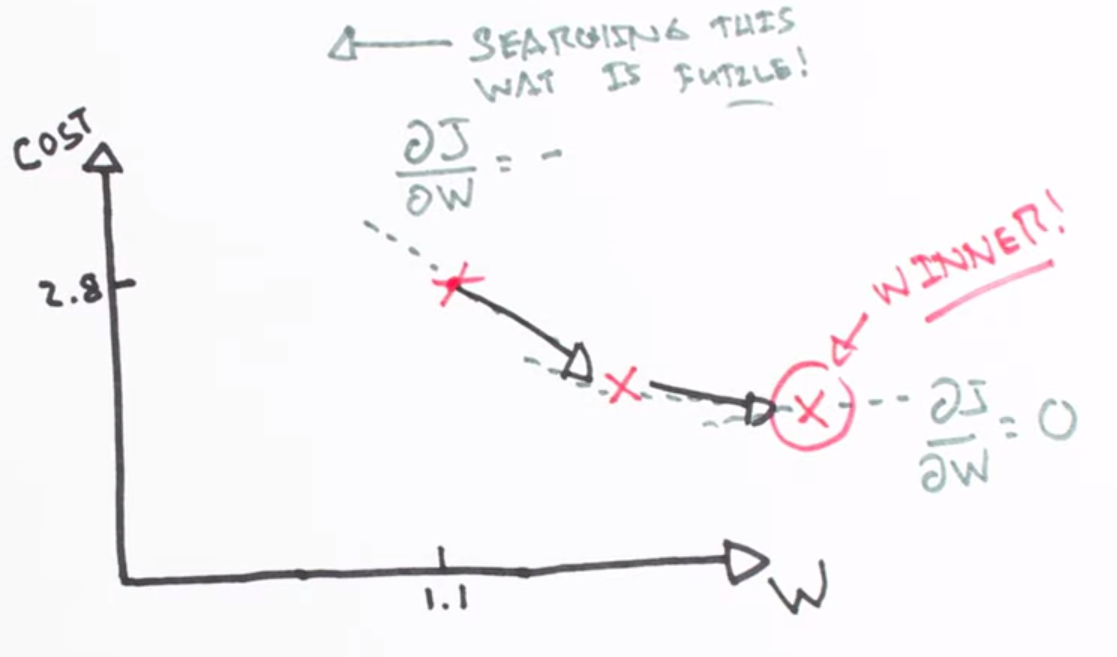 SEARCHING THIS
WAY IS FUTILE!
COST
∂J
∂W
= -
2.8
WINNER!
∂J
∂W
= 0
1.1
W